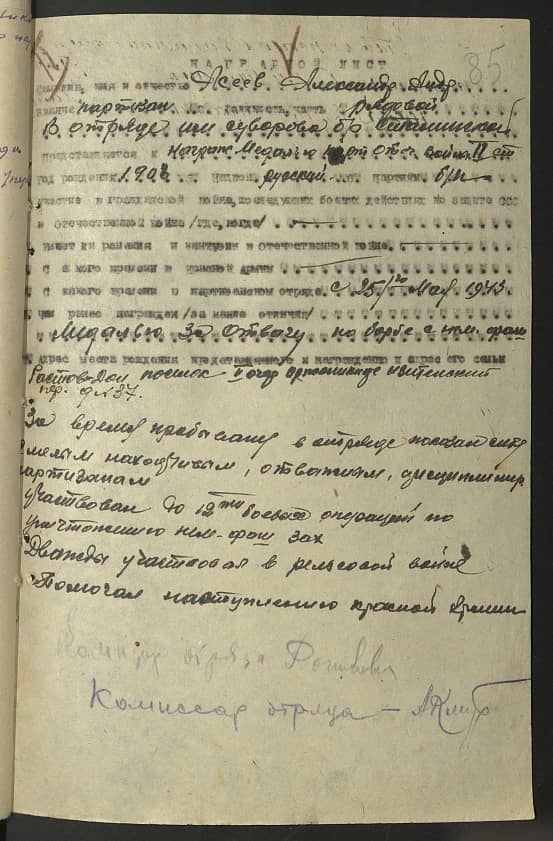 85
НАГРАДНОЙ ЛИСТ
Фамилия, имя и отчество Асеев Александр Андр
звание партизан должность, часть рядовой
В отряде им Суворова бр
Представляется к награж Медалью парт отеч война II ст
год рождения 190 Национ. русский партийн б/п
Участие в гражданской войне, последующих боевых действиях по защите СССР
и Отечественной войне /где, когда/ —
имеет ли ранения и контузии в Отечественной войне —
С какого времени в Красной Армии —
С какого времени в партизанском отряде с 25/го Мая 1943
чем ранее награжден /за какие отличия/
Медалью За отвагу по борьбе с нем. фаш
Адрес места рождения представляемого к награждению и адрес его семьи
Ростов-Дон поселок
пер. д №37.
За время пребывания в отряде показал себя
смелым находчивым, отважным, дисциплинир
партизаном
участвовал до 12ти боевых операций по
уничтожению нем-фаш зах
Дважды участвовал в рельсовой войне
Помогал наступлению красной Армии
Командир отряда
Комиссар отряда —